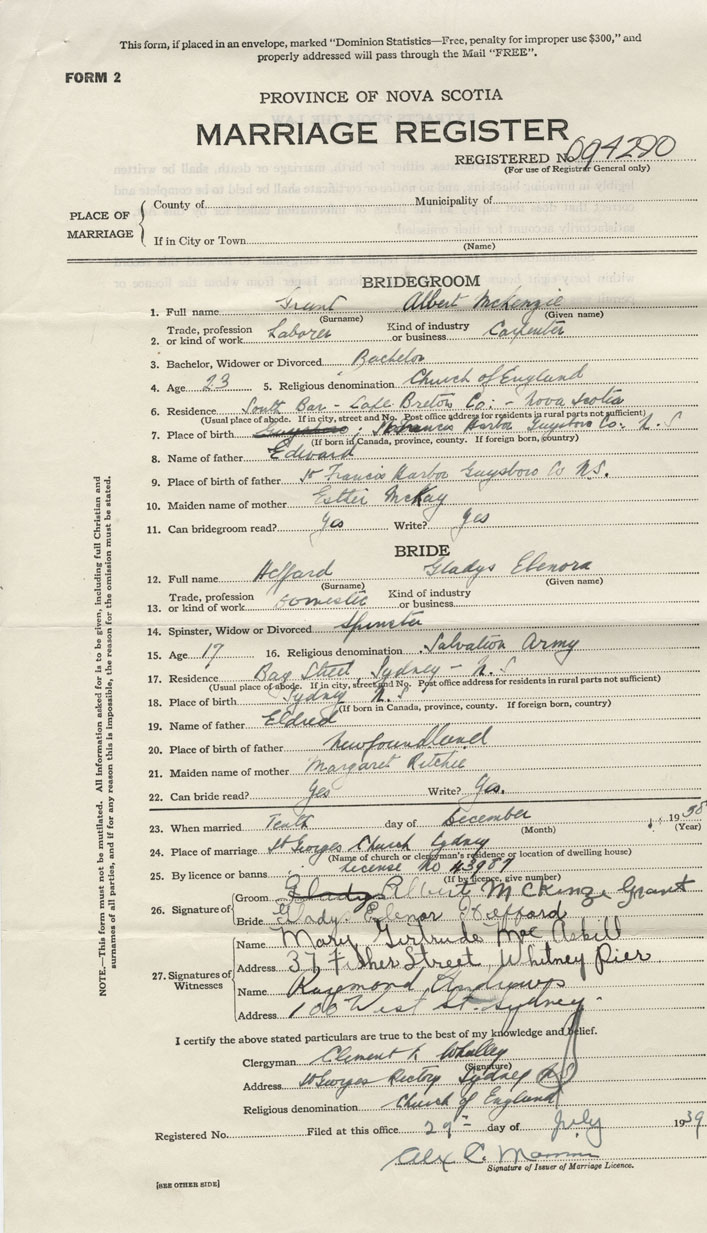 This form, if placed in an envelope, marked "Dominion Statistics—Free, penalty for improper use $300," and
properly addressed will pass through the Mail "FREE".
FORM 2
PROVINCE OF NOVA SCOTIA
MARRIAGE REGISTER
REGISTERED No. 094290
(For use of Registrar General only)
PLACE OF MARRIAGE
County of Municipality of
If in City or Town
(Name)
BRIDEGROOM
1. Full name Grant Albert McKenzie
(Surname) (Given name)
2. Trade, profession or kind of work Laborer Kind of industry or business Carpenter
3. Bachelor, Widower or Divorced Bachelor
4. Age 23 5. Religious denomination Church of England
6. Residence South Bar - Cape Breton Co: - Nova Scotia
(Usual place of abode. If in city, street and No. Post office address for residents in rural parts not sufficient)
7. Place of birth Guysboro; St Francis Harbor Guysboro Co. N. S
(If born in Canada, province, county. If foreign born, country)
8. Name of father Edward
9. Place of birth of father St Francis Harbor Guysboro Co N.S.
10. Maiden name of mother Esther McKay
11. Can bridegroom read? Yes Write? Yes
BRIDE
12. Full name Heffard Gladys Elenora
(Surname) (Given name)
13. Trade, profession or kind of work Domestic Kind of industry or business
14. Spinster, Widow or Divorced Spinster
15. Age 17 16. Religious denomination Salvation Army
17. Residence Bay Street, Sydney - N. S
(Usual place of abode. If in city, street and No. Post office address for residents in rural parts not sufficient)
18. Place of birth Sydney N. S
(If born in Canada, province, county. If foreign born, country)
19. Name of father Eldred
20. Place of birth of father Newfoundland
21. Maiden name of mother Margaret Ritchie
22. Can bride read? Yes Write? Yes.
23. When married Tenth day of December 1938
(Month) (Year)
24. Place of marriage St Georges Church Sydney
(Name of church or clergyman's residence or location of dwelling house)
25. By licence or banns License No 43987
(If by licence, give number)
26. Signature of
Groom Gladys Albert McKenzie Grant
Bride Gladys Elenor Heffard
27. Signatures of Witnesses
Name Mary Gertrude Mac Askill
Address 37 Fisher Street, Whitney Pier
Name Raymond Andrews
Address 100 West st. Sydney
I certify the above stated particulars are true to the best of my knowledge and belief.
Clergyman Clement K Whalley
(Signature)
Address St Georges Rectory Sydney NS
Religious denomination Church of England
Registered No. Filed at this office 29th day of July 1939
Alex C.
Signature of Issuer of Marriage Licence.
[SEE OTHER SIDE]
NOTE.—This form must not be mutilated. All information asked for is to be given, including full Christian and
surnames of all parties, and if for any reason this is impossible, the reason for the omission must be stated.